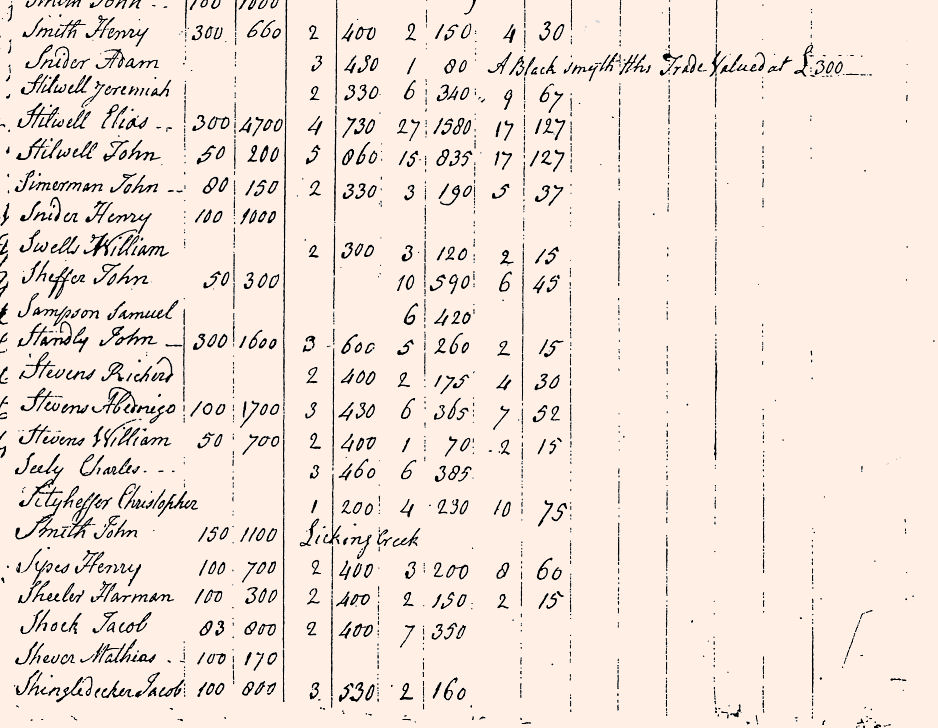 Smith John 100 1000
Smith Henry 300 660 2 400 2 150 4 30
Snider Adam 3 450 1 80 A Black smyth His Trade Valued at £300
Stilwell Jeremiah 2 330 6 340 9 67
Stilwell Elias 300 4700 4 730 27 1580 17 127
Stilwell John 50 200 5 860 15 835 17 127
Simerman John 80 150 2 330 3 190 5 37
Snider Henry 100 1000
Swells William 2 300 3 120 2 15
Sheffer John 50 300 10 590 6 45
Sampson Samuel 6 420
Standly John 300 1600 3 600 5 260 2 15
Stevens Richerd 2 400 2 175 4 30
Stevens Abednigo 100 1700 3 430 6 365 7 52
Stevens William 50 700 2 400 1 70 2 15
Seely Charles 3 460 6 385
Sityheffer Christopher 1 200 4 230 10 75
Smith John 150 1100 Licking Creek
Sipes Henry 100 700 2 400 3 200 8 60
Sheeler Harman 100 300 2 400 2 150 2 15
Shock Jacob 83 800 2 400 7 350
Shever Mathias 100 170
Shingledecker Jacob 100 800 3 530 2 160